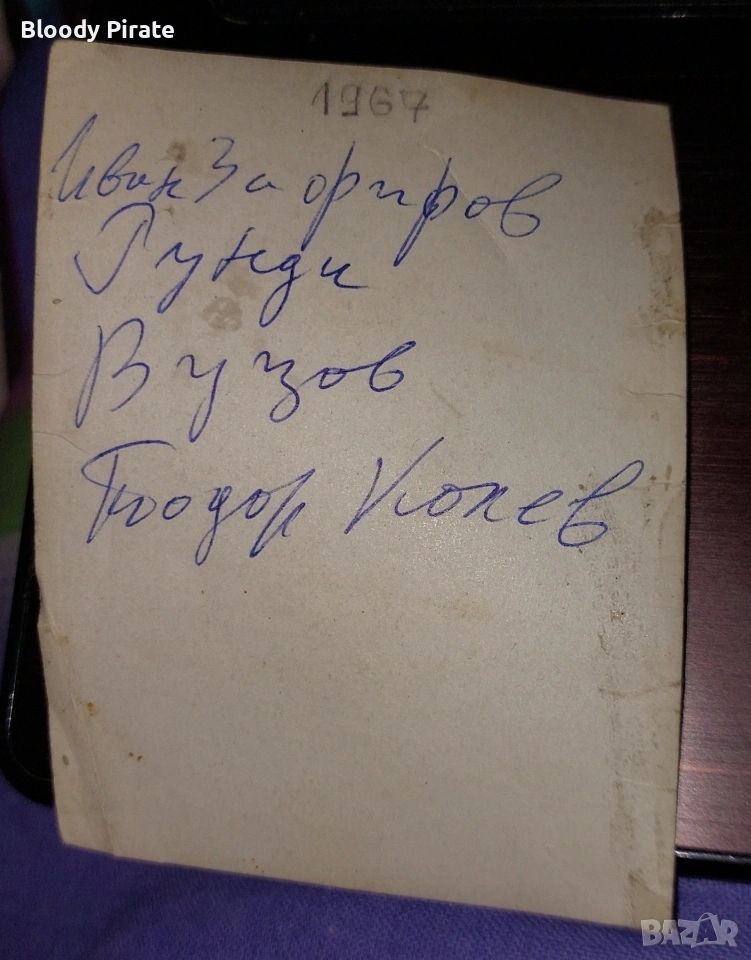 Bloody Pirate
1967
Иван Зафиров
Гунди
Вуцов
Тодор Колев
BAZAR